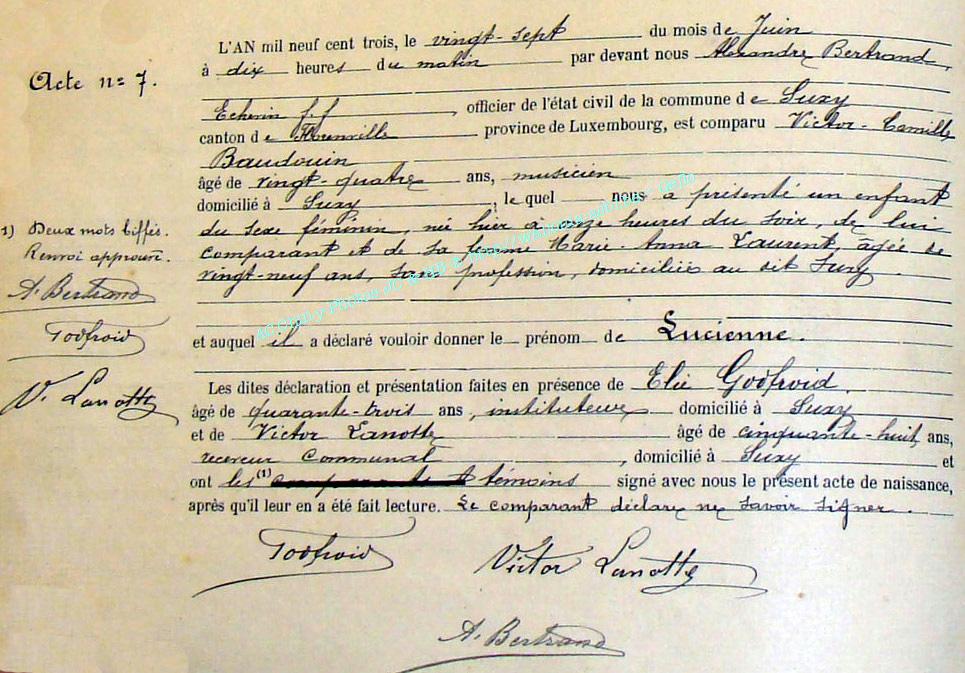 L'AN mil neuf cent trois, le vingt-sept du mois de Juin
Acte n° 7. à dix heures du matin par devant nous Alexandre Bertrand,
Echevin f.f , officier de l'état civil de la commune de Suxy
canton de Florenville province de Luxembourg, est comparu Victor-Camille
Baudouin
âgé de vingt-quatre ans, musicien
domicilié à Suxy , le quel nous a présenté un enfant
1) Deux mots biffés. du sexe féminin, née hier à onze heures du soir, de lui
Renvoi approuvé. comparant et de sa femme Marie-Anna Laurent, âgée de
vingt-neuf ans, sans profession, domiciliée au dit Suxy
A. Bertrand
Godfroid
et auquel il a déclaré vouloir donner le prénom de Lucienne.
V. Lanotte
Les dites déclaration et présentation faites en présence de Elie Godfroid,
âgé de quarante-trois ans, instituteur domicilié à Suxy
et de Victor Lanotte âgé de cinquante-huit ans,
receveur communal , domicilié à Suxy et
ont les (1) témoins signé avec nous le présent acte de naissance,
après qu'il leur en a été fait lecture. Le comparant déclare ne savoir signer.
Godfroid
Victor Lanotte
A. Bertrand